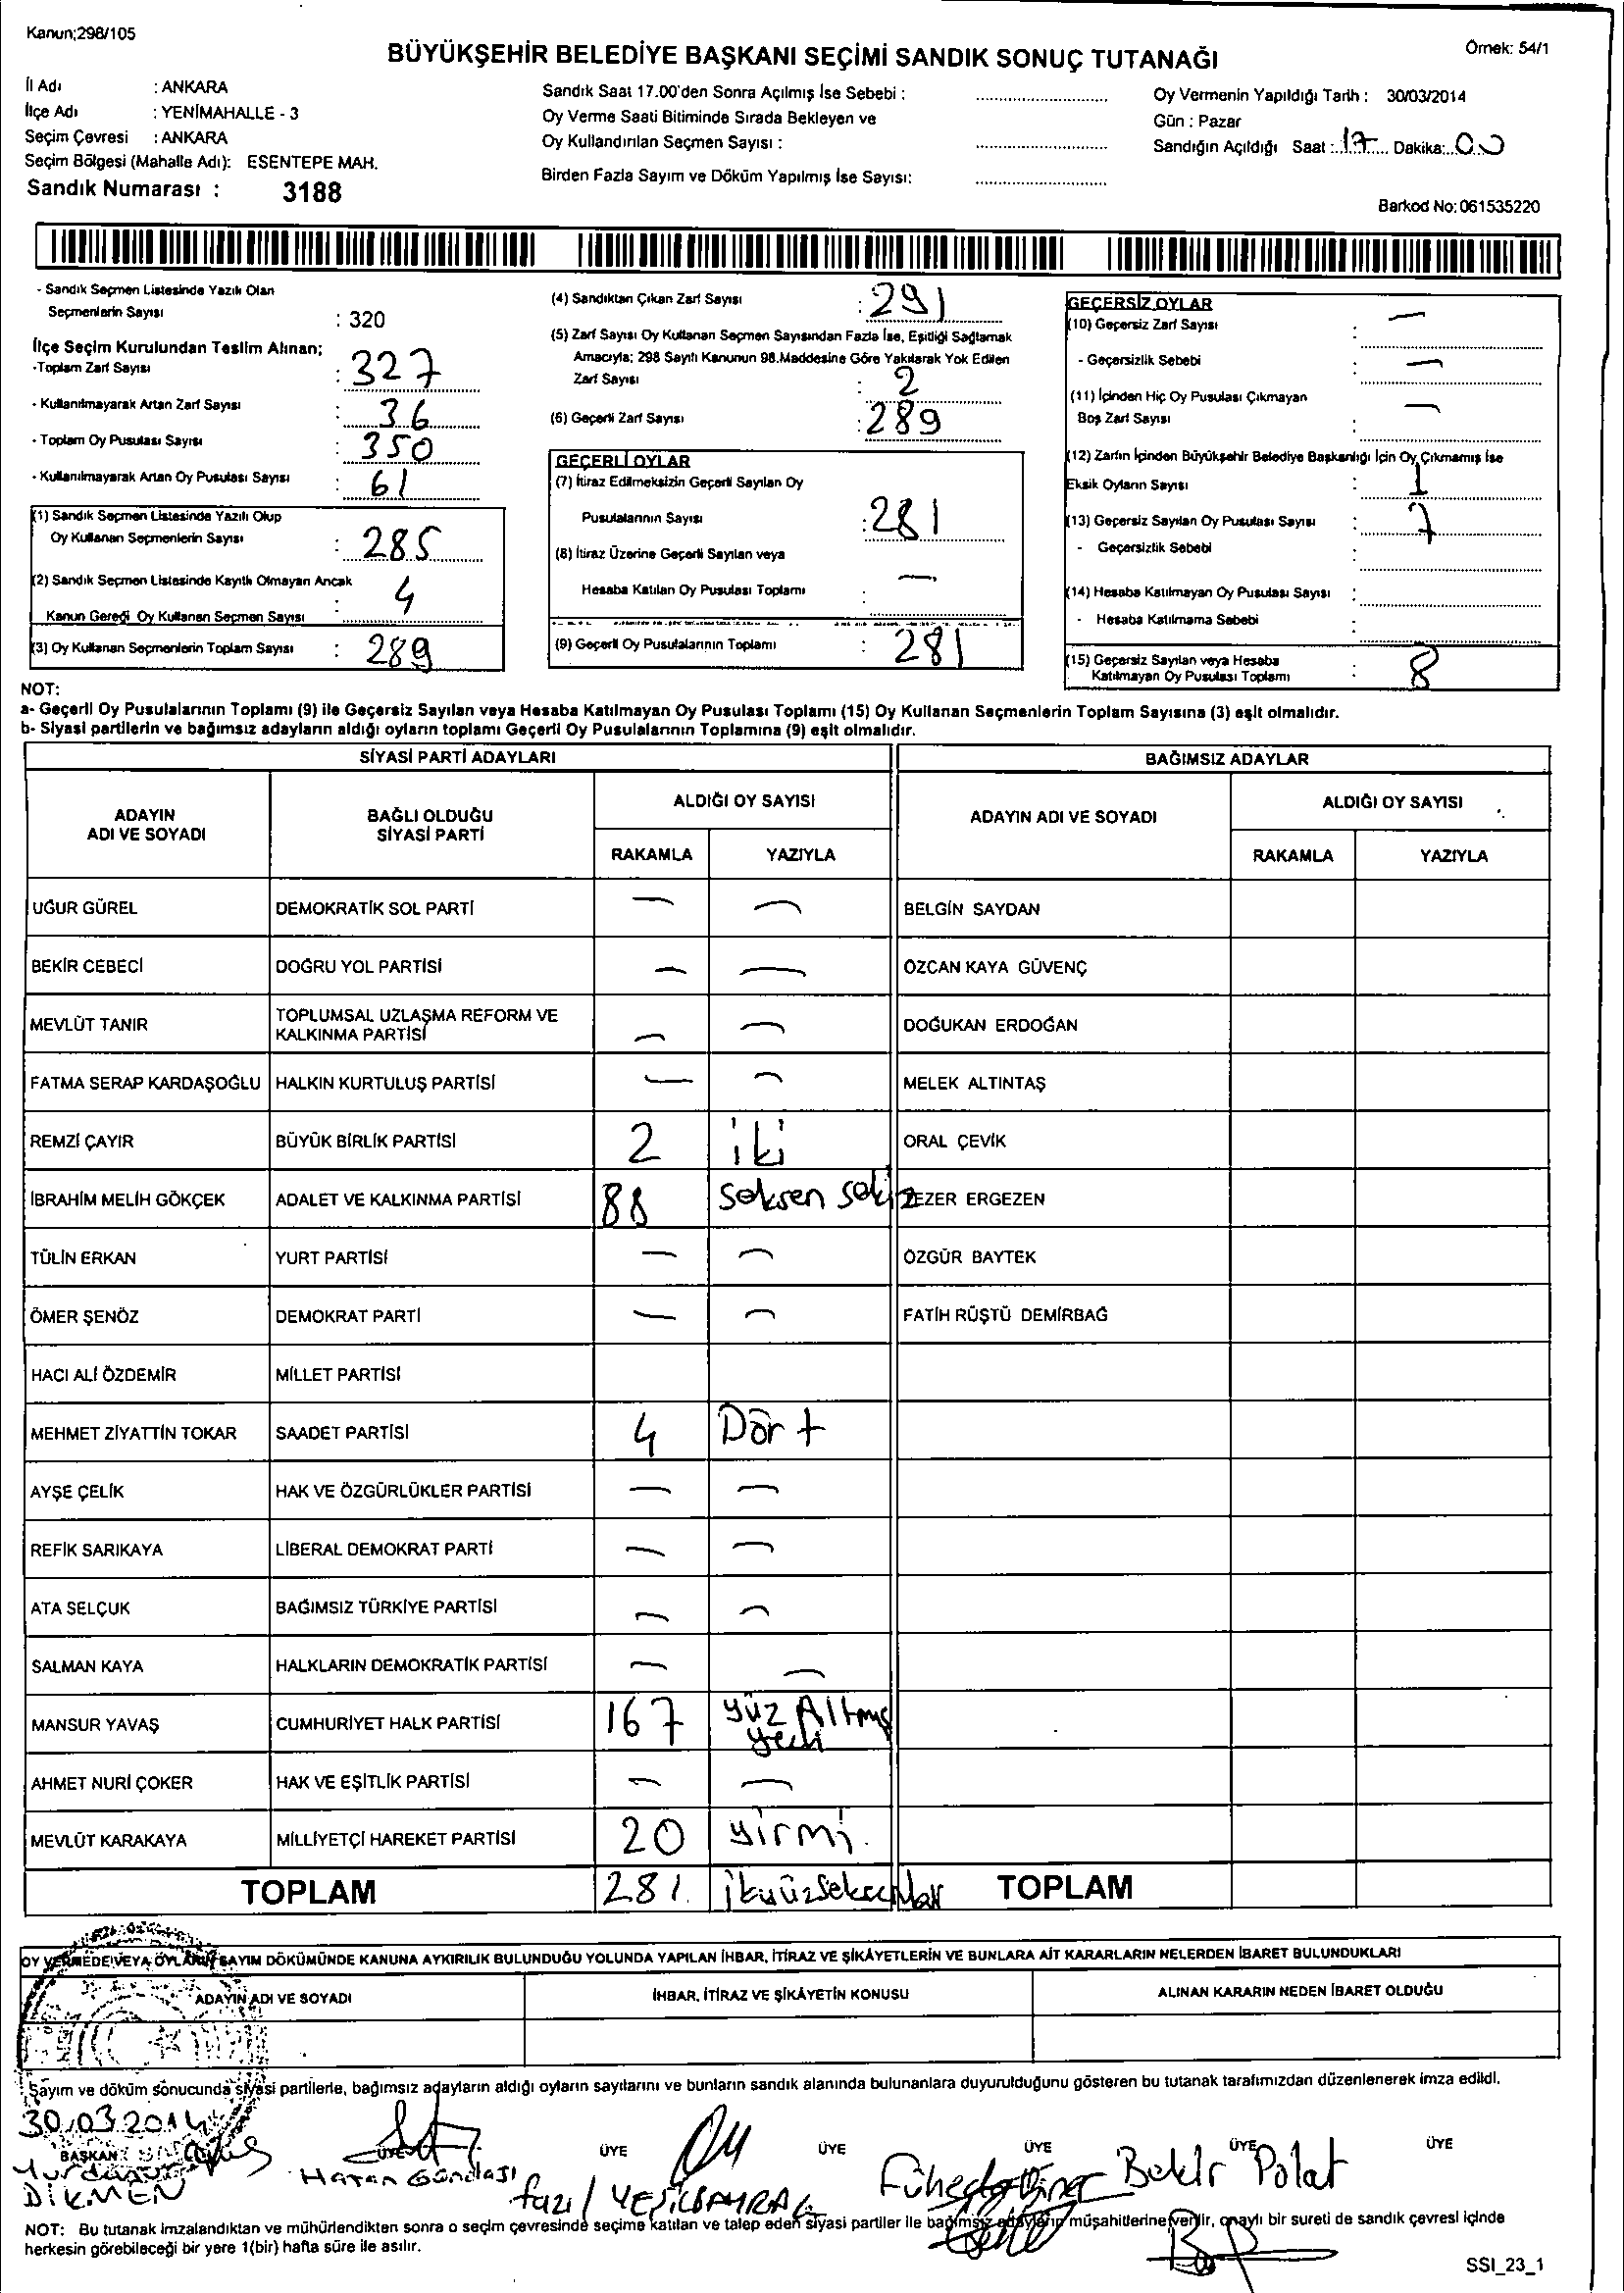 Kanun;298/105
BÜYÜKŞEHİR BELEDİYE BAŞKANI SEÇİMİ SANDIK SONUÇ TUTANAĞI
Örnek: 54/1
İl Adı : ANKARA
İlçe Adı : YENİMAHALLE - 3
Seçim Çevresi : ANKARA
Seçim Bölgesi (Mahalle Adı): ESENTEPE MAH.
Sandık Numarası : 3188
Sandık Saat 17.00'den Sonra Açılmış İse Sebebi :
Oy Verme Saati Bitiminde Sırada Bekleyen ve
Oy Kullandırılan Seçmen Sayısı :
Birden Fazla Sayım ve Döküm Yapılmış İse Sayısı:
Oy Vermenin Yapıldığı Tarih : 30/03/2014
Gün : Pazar
Sandığın Açıldığı Saat : 17 Dakika: 00
Barkod No: 061535220
- Sandık Seçmen Listesinde Yazılı Olan
Seçmenlerin Sayısı : 320
İlçe Seçim Kurulundan Teslim Alınan;
-Toplam Zarf Sayısı : 327
- Kullanılmayarak Artan Zarf Sayısı : 36
- Toplam Oy Pusulası Sayısı : 350
- Kullanılmayarak Artan Oy Pusulası Sayısı : 61
(1) Sandık Seçmen Listesinde Yazılı Olup
Oy Kullanan Seçmenlerin Sayısı : 285
(2) Sandık Seçmen Listesinde Kayıtlı Olmayan Ancak
Kanun Gereği Oy Kullanan Seçmen Sayısı : 4
(3) Oy Kullanan Seçmenlerin Toplam Sayısı : 289
(4) Sandıktan Çıkan Zarf Sayısı : 291
(5) Zarf Sayısı Oy Kullanan Seçmen Sayısından Fazla İse, Eşitliği Sağlamak
Amacıyla; 298 Sayılı Kanunun 98.Maddesine Göre Yakılarak Yok Edilen
Zarf Sayısı : 2
(6) Geçerli Zarf Sayısı : 289
GEÇERLİ OYLAR
(7) İtiraz Edilmeksizin Geçerli Sayılan Oy
Pusulalarının Sayısı : 281
(8) İtiraz Üzerine Geçerli Sayılan veya
Hesaba Katılan Oy Pusulası Toplamı : —
(9) Geçerli Oy Pusulalarının Toplamı : 281
GEÇERSİZ OYLAR
(10) Geçersiz Zarf Sayısı : —
- Geçersizlik Sebebi : —
(11) İçinden Hiç Oy Pusulası Çıkmayan
Boş Zarf Sayısı : —
(12) Zarfın İçinden Büyükşehir Belediye Başkanlığı İçin Oy Çıkmamış İse
Eksik Oyların Sayısı : 1
(13) Geçersiz Sayılan Oy Pusulası Sayısı : 7
- Geçersizlik Sebebi :
(14) Hesaba Katılmayan Oy Pusulası Sayısı :
- Hesaba Katılmama Sebebi :
(15) Geçersiz Sayılan veya Hesaba
Katılmayan Oy Pusulası Toplamı : 8
NOT:
a- Geçerli Oy Pusulalarının Toplamı (9) ile Geçersiz Sayılan veya Hesaba Katılmayan Oy Pusulası Toplamı (15) Oy Kullanan Seçmenlerin Toplam Sayısına (3) eşit olmalıdır.
b- Siyasi partilerin ve bağımsız adayların aldığı oyların toplamı Geçerli Oy Pusulalarının Toplamına (9) eşit olmalıdır.
SİYASİ PARTİ ADAYLARI BAĞIMSIZ ADAYLAR
ADAYIN ADI VE SOYADI BAĞLI OLDUĞU SİYASİ PARTİ ALDIĞI OY SAYISI ADAYIN ADI VE SOYADI ALDIĞI OY SAYISI
RAKAMLA YAZIYLA RAKAMLA YAZIYLA
UĞUR GÜREL DEMOKRATİK SOL PARTİ — — BELGİN SAYDAN
BEKİR CEBECİ DOĞRU YOL PARTİSİ — — ÖZCAN KAYA GÜVENÇ
MEVLÜT TANIR TOPLUMSAL UZLAŞMA REFORM VE KALKINMA PARTİSİ — — DOĞUKAN ERDOĞAN
FATMA SERAP KARDAŞOĞLU HALKIN KURTULUŞ PARTİSİ — — MELEK ALTINTAŞ
REMZİ ÇAYIR BÜYÜK BİRLİK PARTİSİ 2 iki ORAL ÇEVİK
İBRAHİM MELİH GÖKÇEK ADALET VE KALKINMA PARTİSİ 88 seksen sekiz EZER ERGEZEN
TÜLİN ERKAN YURT PARTİSİ — — ÖZGÜR BAYTEK
ÖMER ŞENÖZ DEMOKRAT PARTİ — — FATİH RÜŞTÜ DEMİRBAĞ
HACI ALİ ÖZDEMİR MİLLET PARTİSİ
MEHMET ZİYATTİN TOKAR SAADET PARTİSİ 4 Dört
AYŞE ÇELİK HAK VE ÖZGÜRLÜKLER PARTİSİ — —
REFİK SARIKAYA LİBERAL DEMOKRAT PARTİ — —
ATA SELÇUK BAĞIMSIZ TÜRKİYE PARTİSİ — —
SALMAN KAYA HALKLARIN DEMOKRATİK PARTİSİ — —
MANSUR YAVAŞ CUMHURİYET HALK PARTİSİ 167 yüz Altmış yedi
AHMET NURİ ÇOKER HAK VE EŞİTLİK PARTİSİ — —
MEVLÜT KARAKAYA MİLLİYETÇİ HAREKET PARTİSİ 20 yirmi
TOPLAM 281 TOPLAM
OY VERMEDE VEYA OYLARIN SAYIM DÖKÜMÜNDE KANUNA AYKIRILIK BULUNDUĞU YOLUNDA YAPILAN İHBAR, İTİRAZ VE ŞİKÂYETLERİN VE BUNLARA AİT KARARLARIN NELERDEN İBARET BULUNDUKLARI
ADAYIN ADI VE SOYADI İHBAR, İTİRAZ VE ŞİKÂYETİN KONUSU ALINAN KARARIN NEDEN İBARET OLDUĞU
Sayım ve döküm sonucunda siyasi partilerle, bağımsız adayların aldığı oyların sayılarını ve bunların sandık alanında bulunanlara duyurulduğunu gösteren bu tutanak tarafımızdan düzenlenerek imza edildi.
30.03.2014
BAŞKAN ÜYE ÜYE ÜYE ÜYE ÜYE ÜYE
DİKMEN Hasan Gündaşı fazıl YEŞİLBAYRAK Bekir Polat
NOT: Bu tutanak imzalandıktan ve mühürlendikten sonra o seçim çevresinde seçime katılan ve talep eden siyasi partiler ile bağımsız adayların müşahitlerine verilir, onaylı bir sureti de sandık çevresi içinde
herkesin görebileceği bir yere 1(bir) hafta süre ile asılır.
SSI_23_1